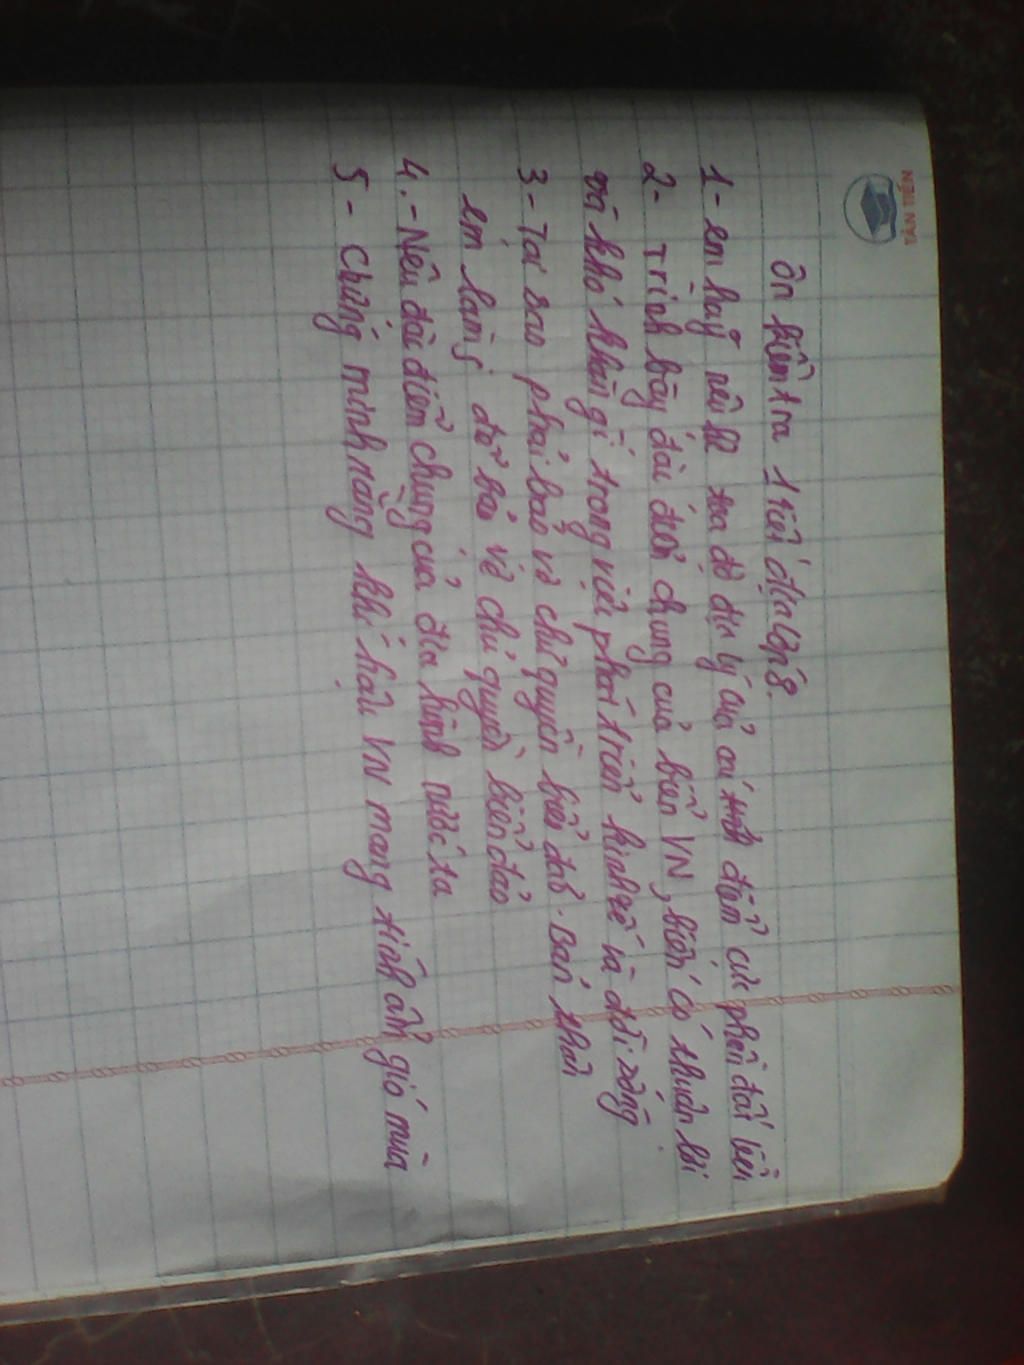 TAN TIEN
ôn kiểm tra 1 tiết địa lớp 8.
1- em hãy nêu toạ độ địa lý của các điểm cực phần đất liền
2- Trình bày đặc điểm chung của biển VN, biển có thuận lợi
và khó khăn gì trong việc phát triển kinh tế và đời sống
3- Tại sao phải bảo vệ chủ quyền biển đảo. Bản thân
em làm gì để bảo vệ chủ quyền biển đảo
4.- Nêu đặc điểm chung của địa hình nước ta
5- Chứng minh rằng khí hậu VN mang tính ẩm gió mùa